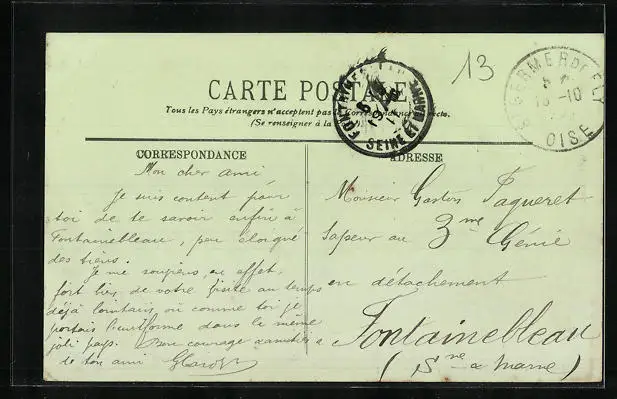 13
CARTE POSTALE
Tous les Pays étrangers n'acceptent pas la Correspondance au recto.
(Se renseigner à la
FONTAINEBLEAU
SEINE ET MARNE
ST GERMER DE FLY
10 -10
OISE
CORRESPONDANCE
Mon cher ami
Je suis content pour
toi de te savoir enfin à
Fontainebleau, peu éloigné
des tiens.
Je me souviens, en effet,
fort bien de votre visite au temps
déjà lointain où comme toi je
portais l'uniforme dans le même
joli pays. Bon courage
ton ami
ADRESSE
Monsieur Gaston Paqueret
Sapeur au 3me Génie
en détachement
Fontainebleau
(Sne & Marne)